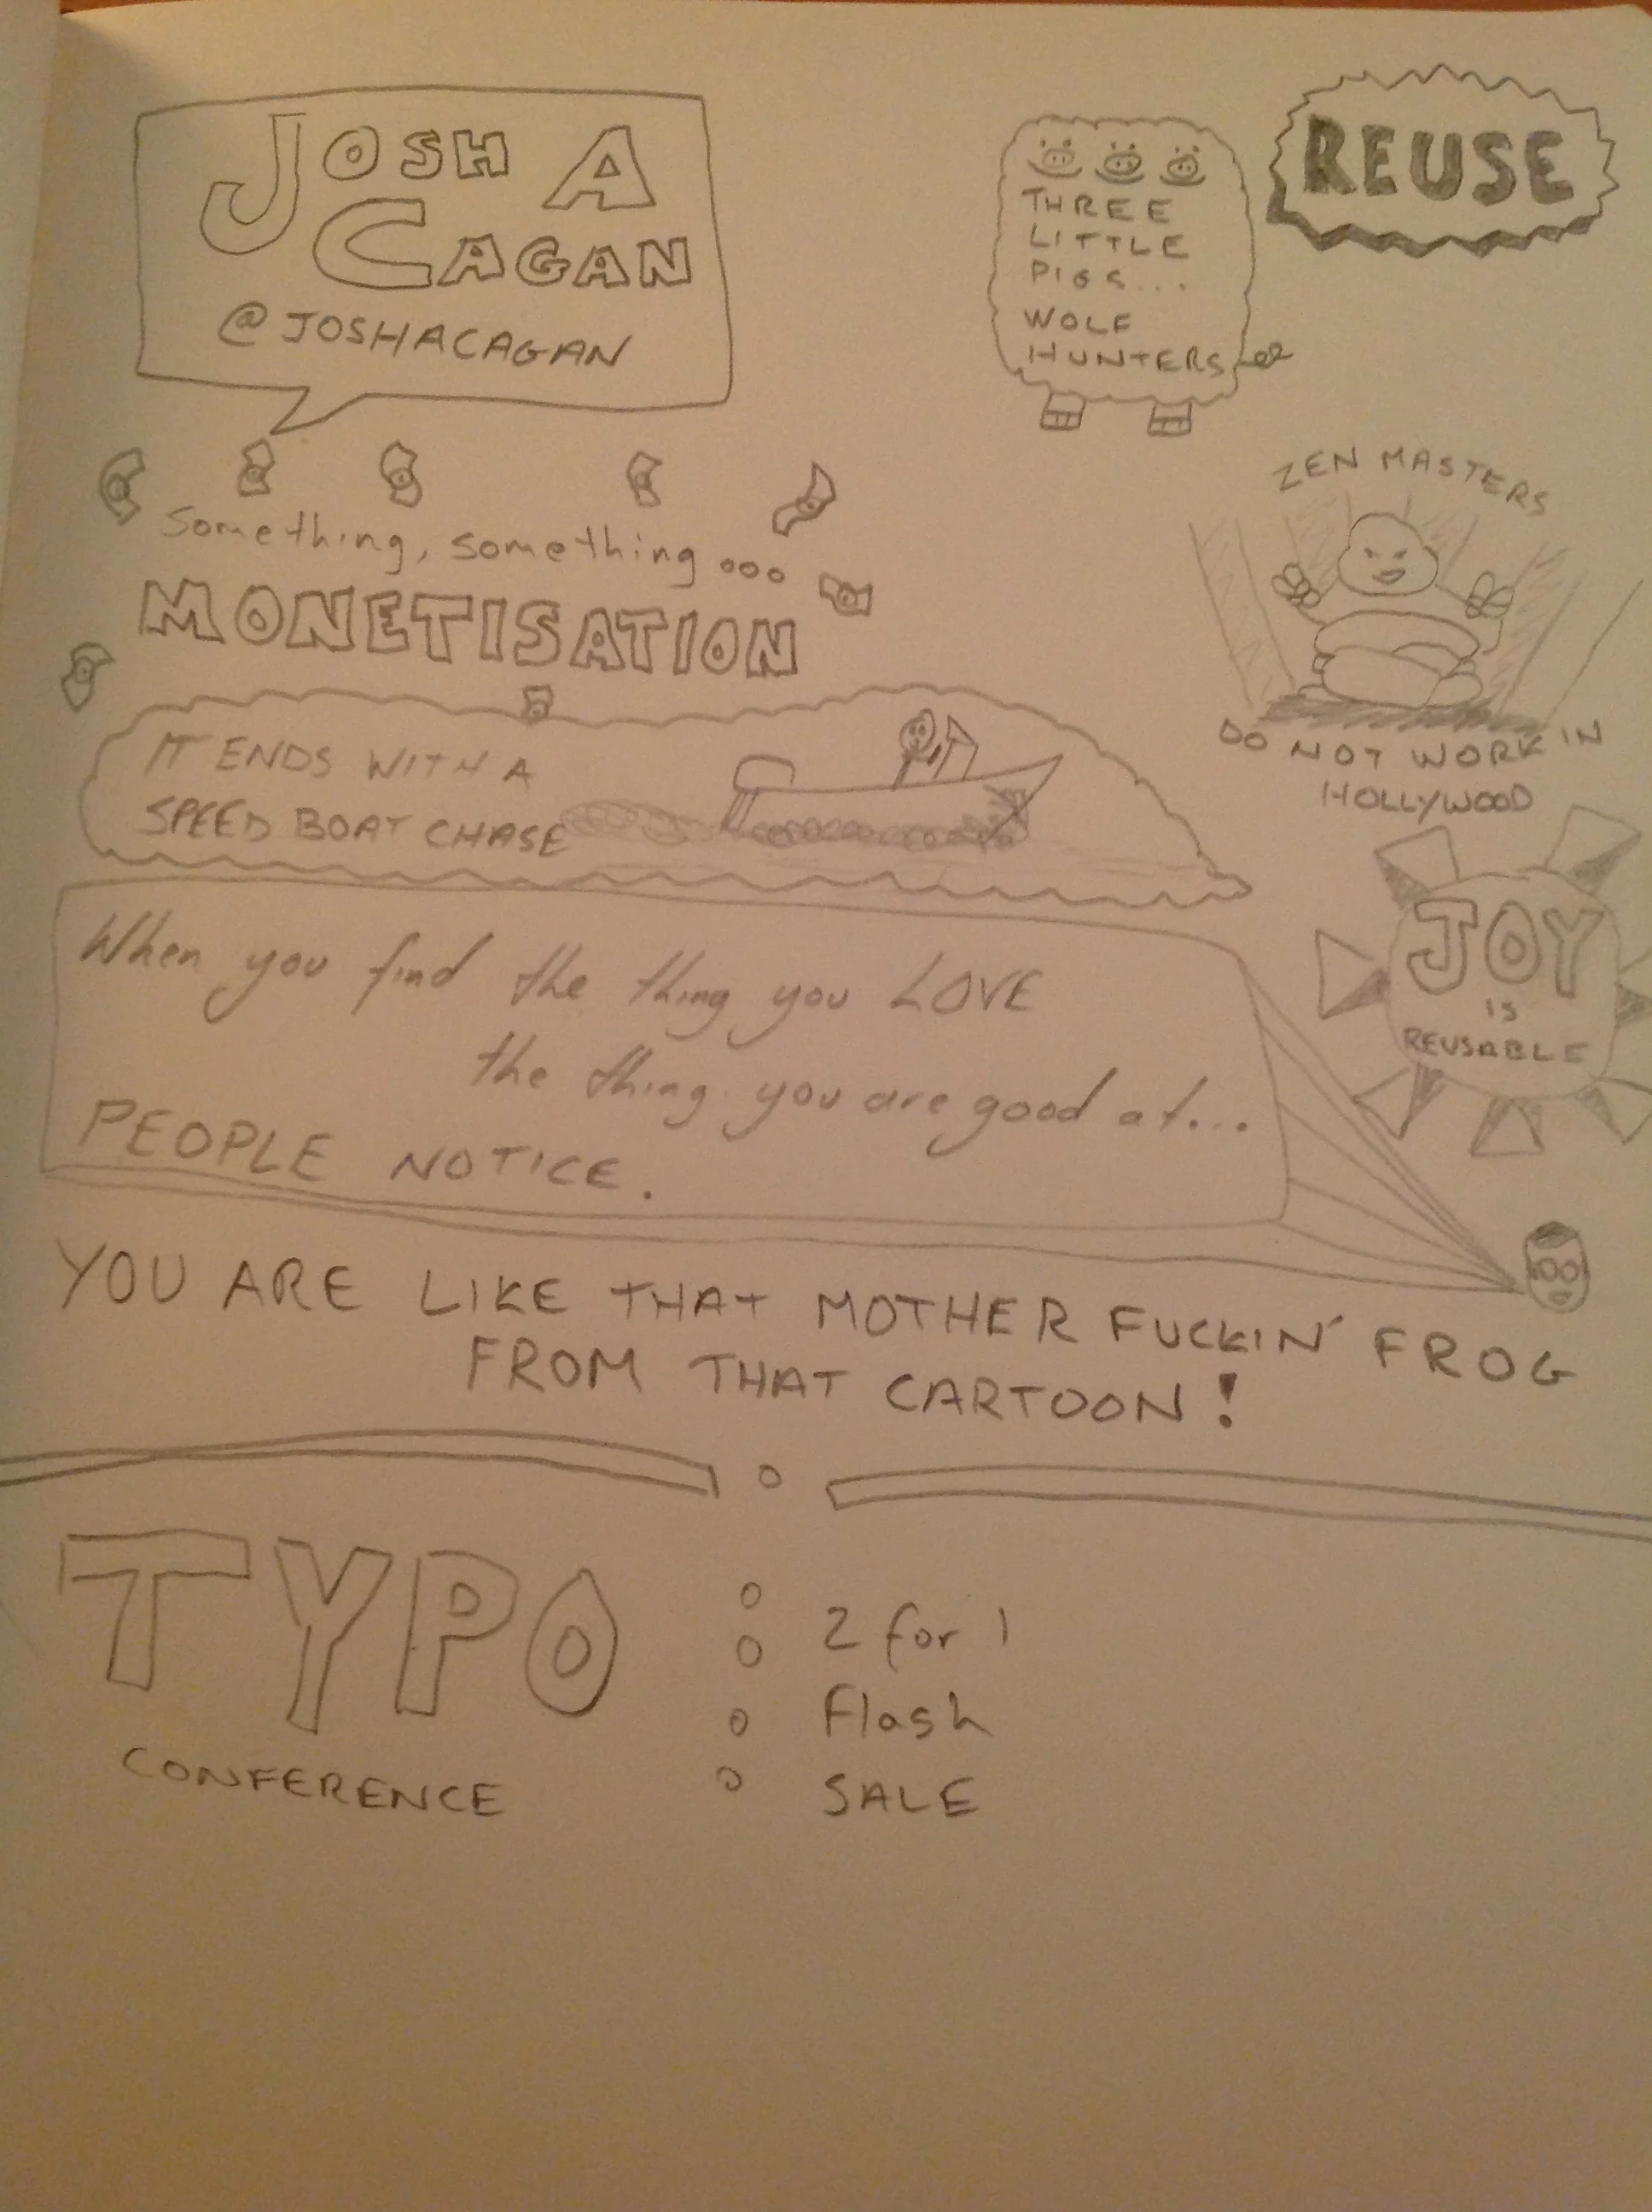 JOSH A
CAGAN
@JOSHACAGAN
THREE
LITTLE
PIGS...
WOLF
HUNTERS
REUSE
Something, something...
MONETISATION
ZEN MASTERS
DO NOT WORK IN
HOLLYWOOD
IT ENDS WITH A
SPEED BOAT CHASE
JOY
IS
REUSABLE
When you find the thing you LOVE
the thing you are good at...
PEOPLE NOTICE.
YOU ARE LIKE THAT MOTHER FUCKIN' FROG
FROM THAT CARTOON!
TYPO
CONFERENCE
2 for 1
Flash
SALE